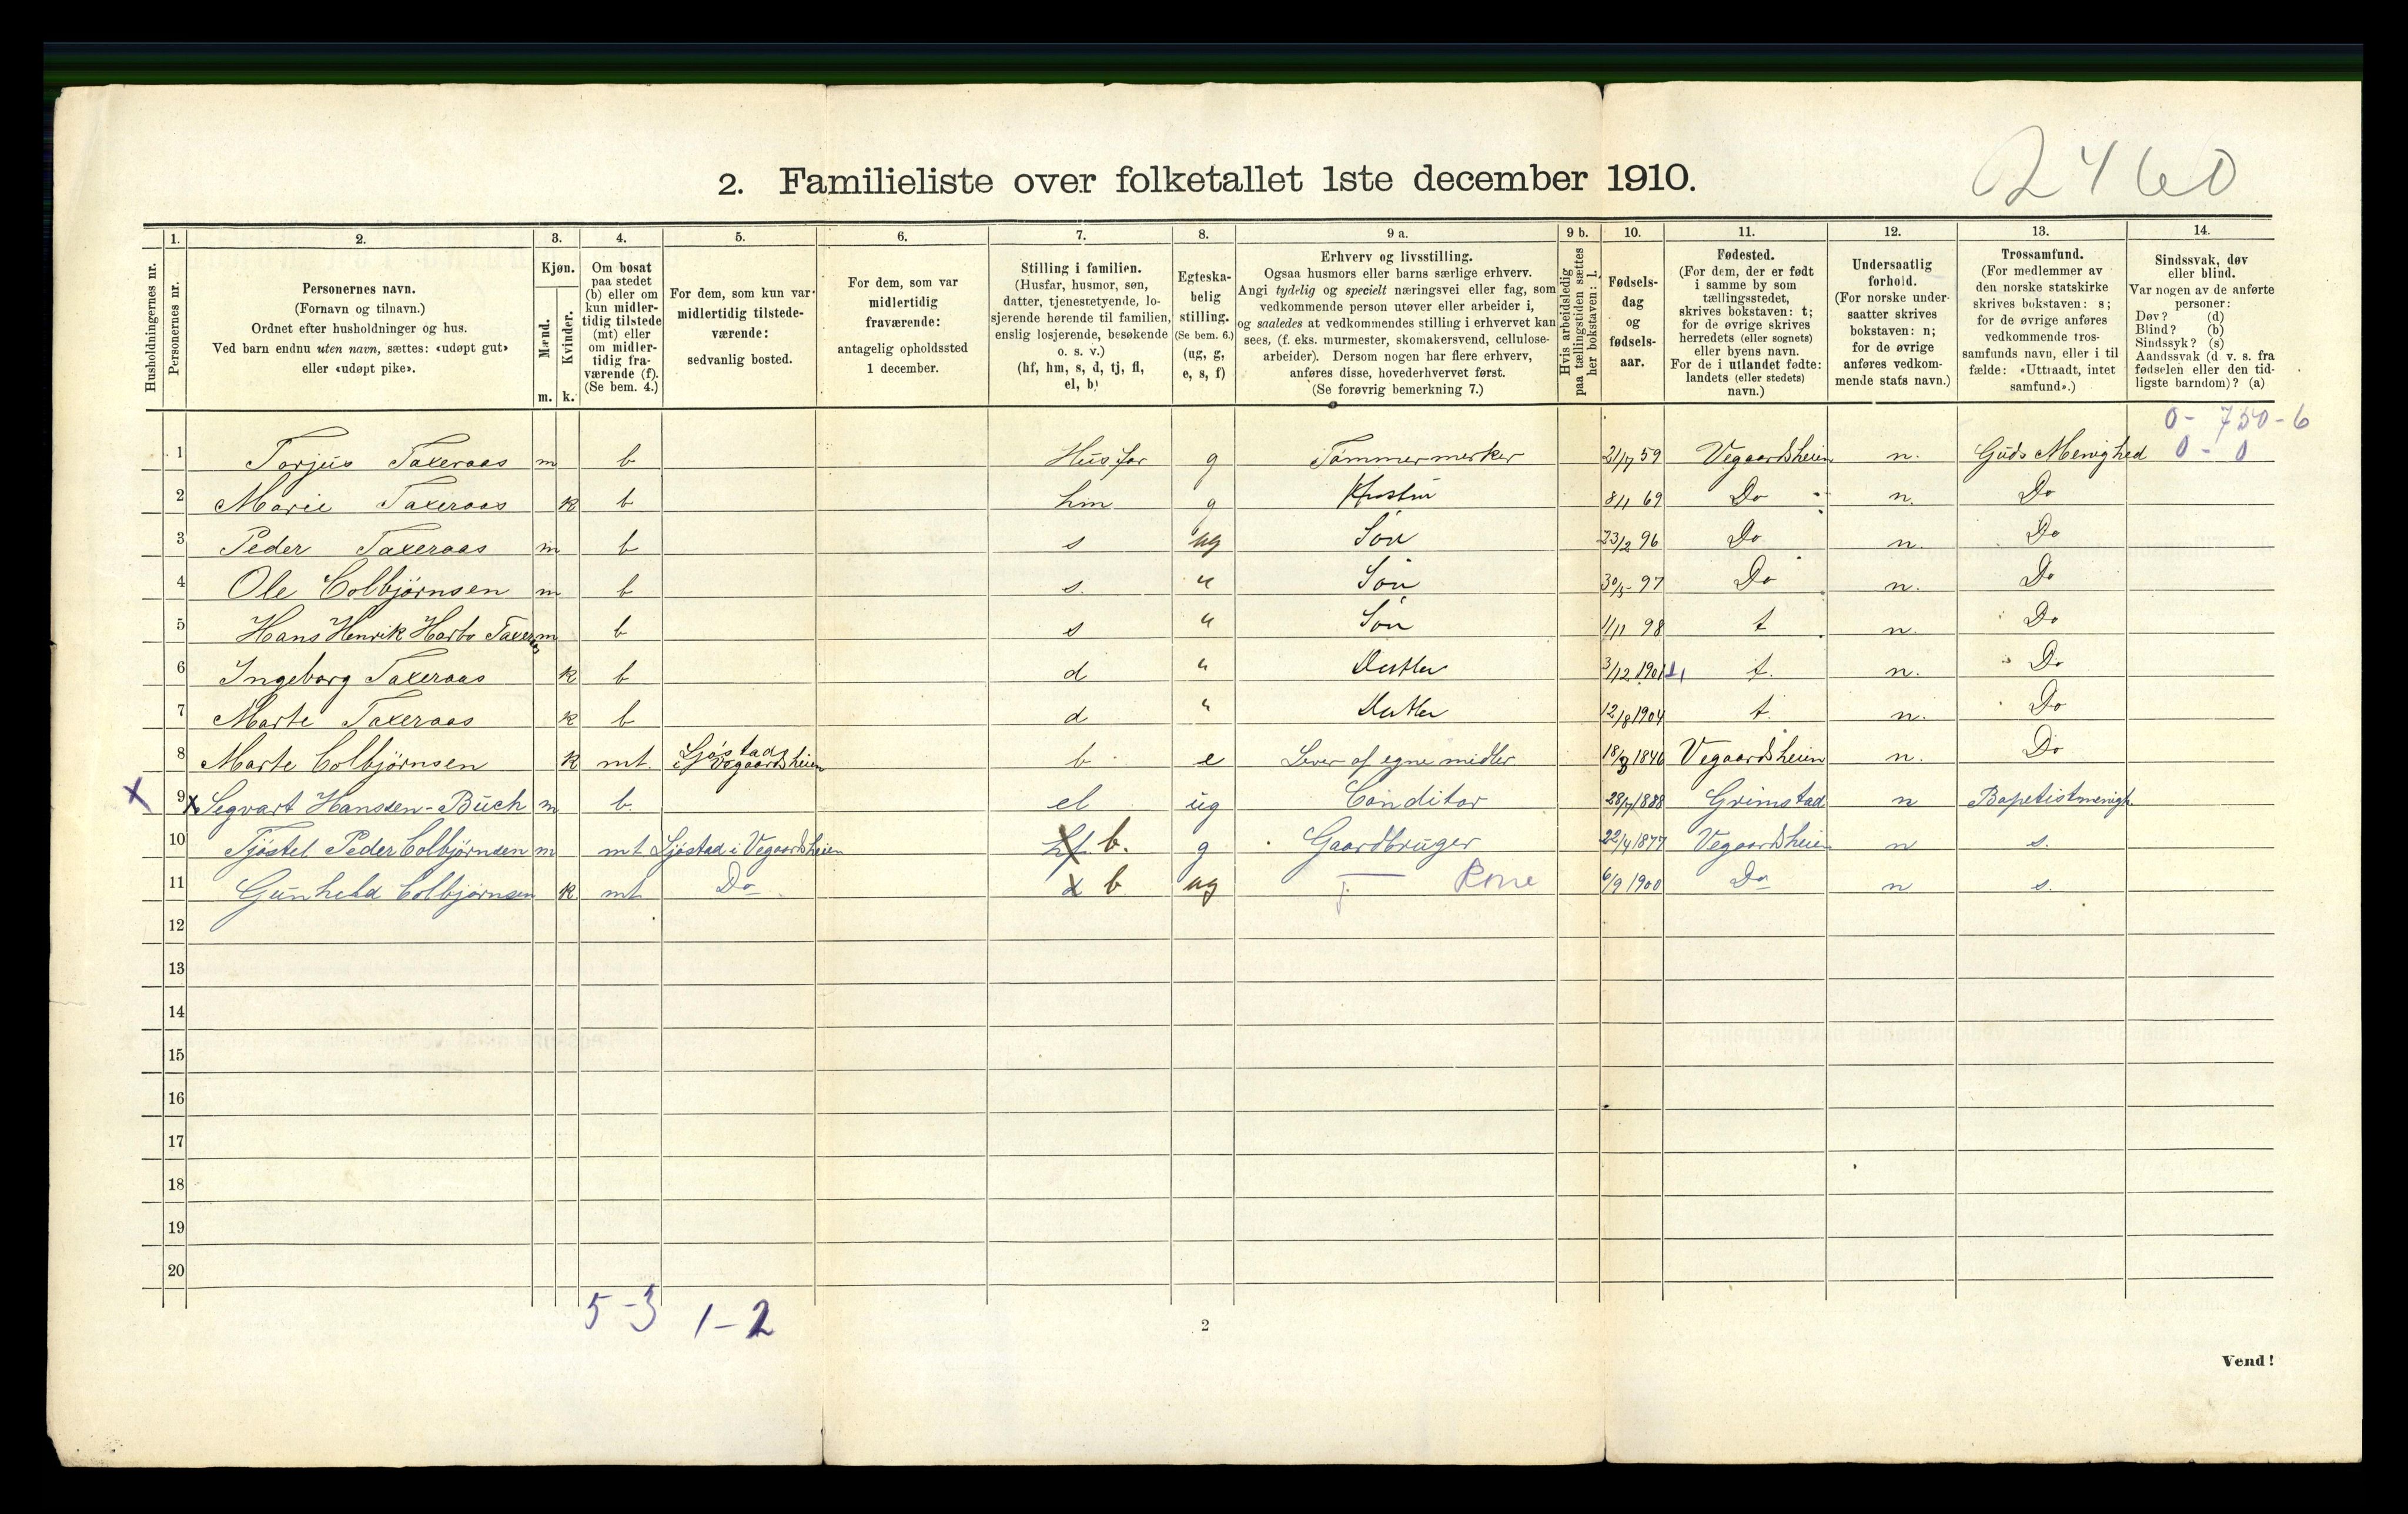 2. Familieliste over folketallet 1ste december 1910.
2460
1. 2. 3. 4. 5. 6. 7. 8. 9 a. 9 b. 10. 11. 12. 13. 14.
Husholdningernes nr.
Personernes nr.
Personernes navn.
(Fornavn og tilnavn.)
Ordnet efter husholdninger og hus.
Ved barn endnu uten navn, sættes: «udøpt gut»
eller «udøpt pike».
Kjøn.
Mænd.
Kvinder.
m. k.
Om bosat
paa stedet
(b) eller om
kun midler-
tidig tilstede
(mt) eller
om midler-
tidig fra-
værende (f).
(Se bem. 4.)
For dem, som kun var
midlertidig tilstede-
værende:
sedvanlig bosted.
For dem, som var
midlertidig
fraværende:
antagelig opholdssted
1 december.
Stilling i familien.
(Husfar, husmor, søn,
datter, tjenestetyende, lo-
sjerende hørende til familien,
enslig losjerende, besøkende
o. s. v.)
(hf, hm, s, d, tj, fl,
el, b)
Egteska-
belig
stilling.
(Se bem. 6.)
(ug, g,
e, s, f)
Erhverv og livsstilling.
Ogsaa husmors eller barns særlige erhverv.
Angi tydelig og specielt næringsvei eller fag, som
vedkommende person utøver eller arbeider i,
og saaledes at vedkommendes stilling i erhvervet kan
sees, (f. eks. murmester, skomakersvend, cellulose-
arbeider). Dersom nogen har flere erhverv,
anføres disse, hovederhvervet først.
(Se forøvrig bemerkning 7.)
Hvis arbeidsledig
paa tællingstiden sættes
her bokstaven: l.
Fødsels-
dag
og
fødsels-
aar.
Fødested.
(For dem, der er født
i samme by som
tællingsstedet,
skrives bokstaven: t;
for de øvrige skrives
herredets (eller sognets)
eller byens navn.
For de i utlandet fødte:
landets (eller stedets)
navn.)
Undersaatlig
forhold.
(For norske under-
saatter skrives
bokstaven: n;
for de øvrige
anføres vedkom-
mende stats navn.)
Trossamfund.
(For medlemmer av
den norske statskirke
skrives bokstaven: s;
for de øvrige anføres
vedkommende tros-
samfunds navn, eller i til
fælde: «Uttraadt, intet
samfund».)
Sindssvak, døv
eller blind.
Var nogen av de anførte
personer:
Døv? (d)
Blind? (b)
Sindssyk? (s)
Aandssvak (d v. s. fra
fødselen eller den tid-
ligste barndom)? (a)
0 - 750 - 6
0 - 0
1 Torjus Taxeraas m b Husfar g Tømmermerker 21/7 59 Vegaardsheien n. Guds Menighed
2 Marie Taxeraas k b hm g 8/1 69 Do n. Do
3 Peder Taxeraas m b s ug Søn 23/2 96 Do n. Do
4 Ole Colbjørnsen m b s. " Søn 30/5 97 Do n. Do
5 Hans Henrik Harbo Taxeraas m b s " Søn 1/11 98 t n. Do
6 Ingeborg Taxeraas k b d " Datter 3/12 1901 t. n. Do
7 Marte Taxeraas k b d " Datter 12/8 1904 t. n. Do
8 Marte Colbjørnsen k mt. Sjøstad i Vegaardsheien b e Lever af egne midler. 18/3 1846 Vegaardsheien n. Do
x 9 x Segvart Hanssen-Buch m b. el ug Conditor 28/7 1888 Grimstad n Bapetistmenigh.
10 Tjøstel Peder Colbjørnsen m mt Sjøstad i Vegaardsheien hf b. g Gaardbruger 22/4 1877 Vegaardsheien n s.
11 Gunheld Colbjørnsen k mt Do d b ug 6/9 1900 Do n s.
12
13
14
15
16
17
18
19
20
5 - 3 1 - 2
2
Vend!